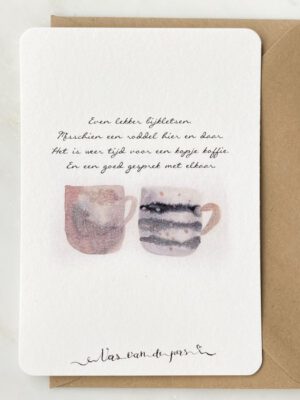 Even lekker bijkletsen.
Misschien een roddel hier en daar.
Het is weer tijd voor een kopje koffie.
En een goed gesprek met elkaar.
van de pers